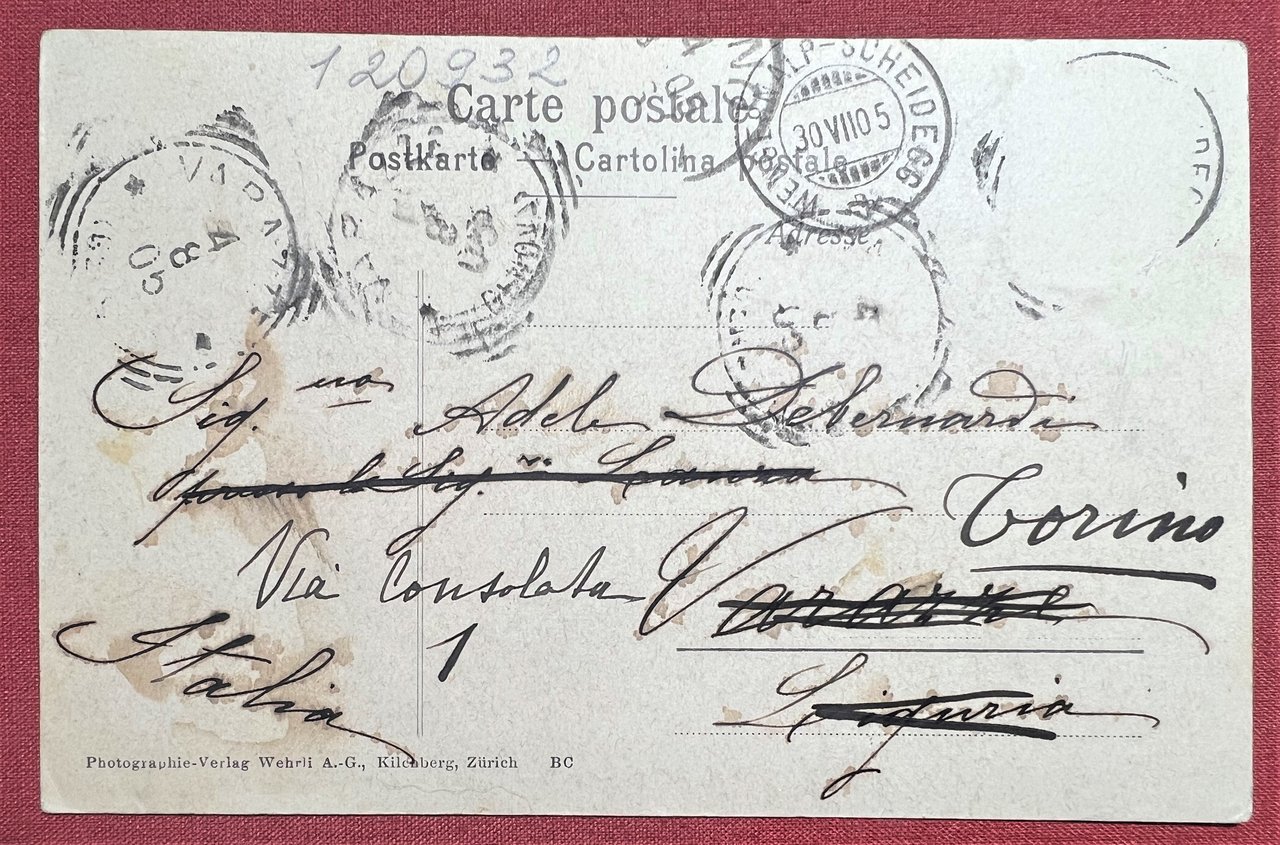 120932
Carte postale
Postkarte — Cartolina postale
WENGERNALP-SCHEIDEGG
30 VII 05
VARAZZE
4 8 05
Adresse
Sig.na Adele Debernardi
la Sig.
Torino
Via Consolata Varazze
1
Italia
Liguria
Photographie-Verlag Wehrli A.-G., Kilchberg, Zürich BC